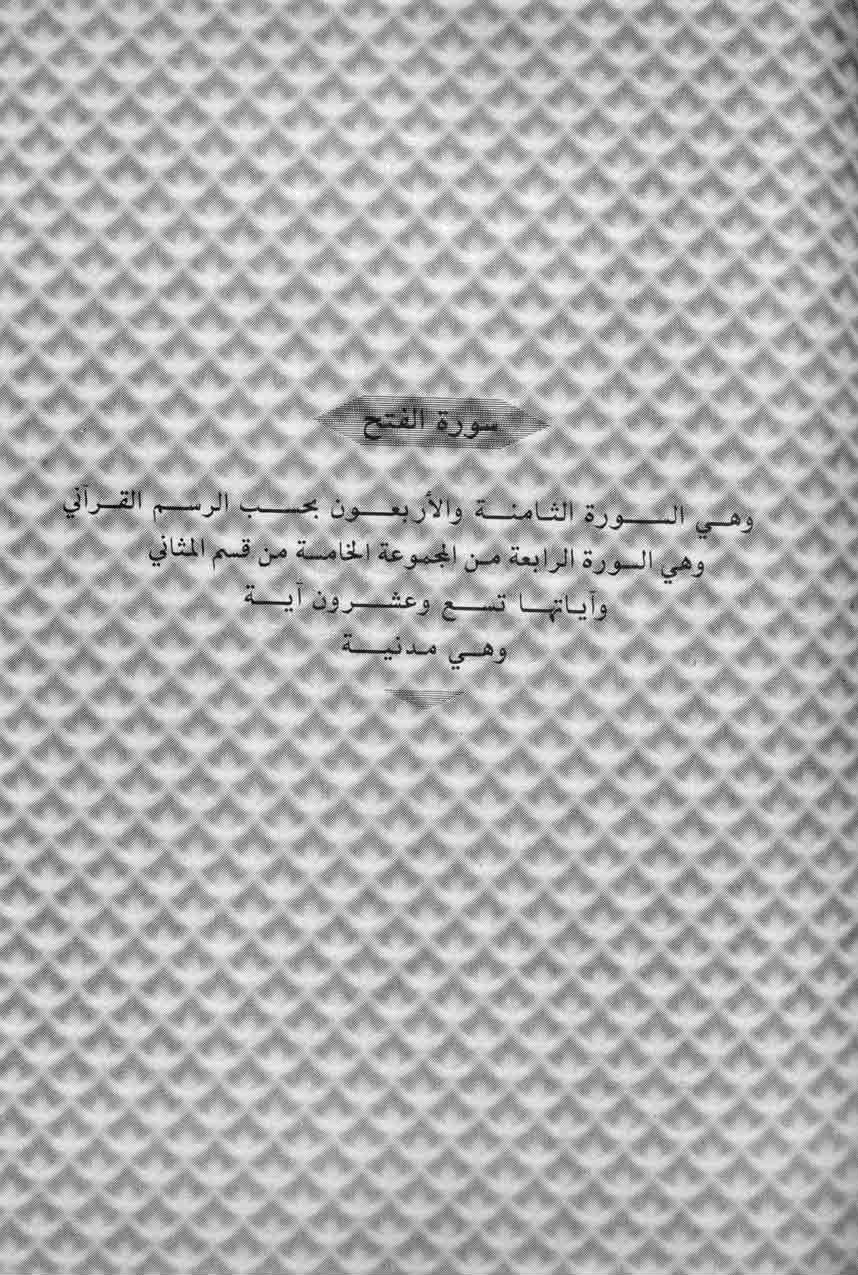 سورة الفتح
وهي السورة الثامنة والأربعون بحسب الرسم القرآني
وهي السورة الرابعة من المجموعة الخامسة من قسم المثاني
وآياتها تسع وعشرون آية
وهي مدنية